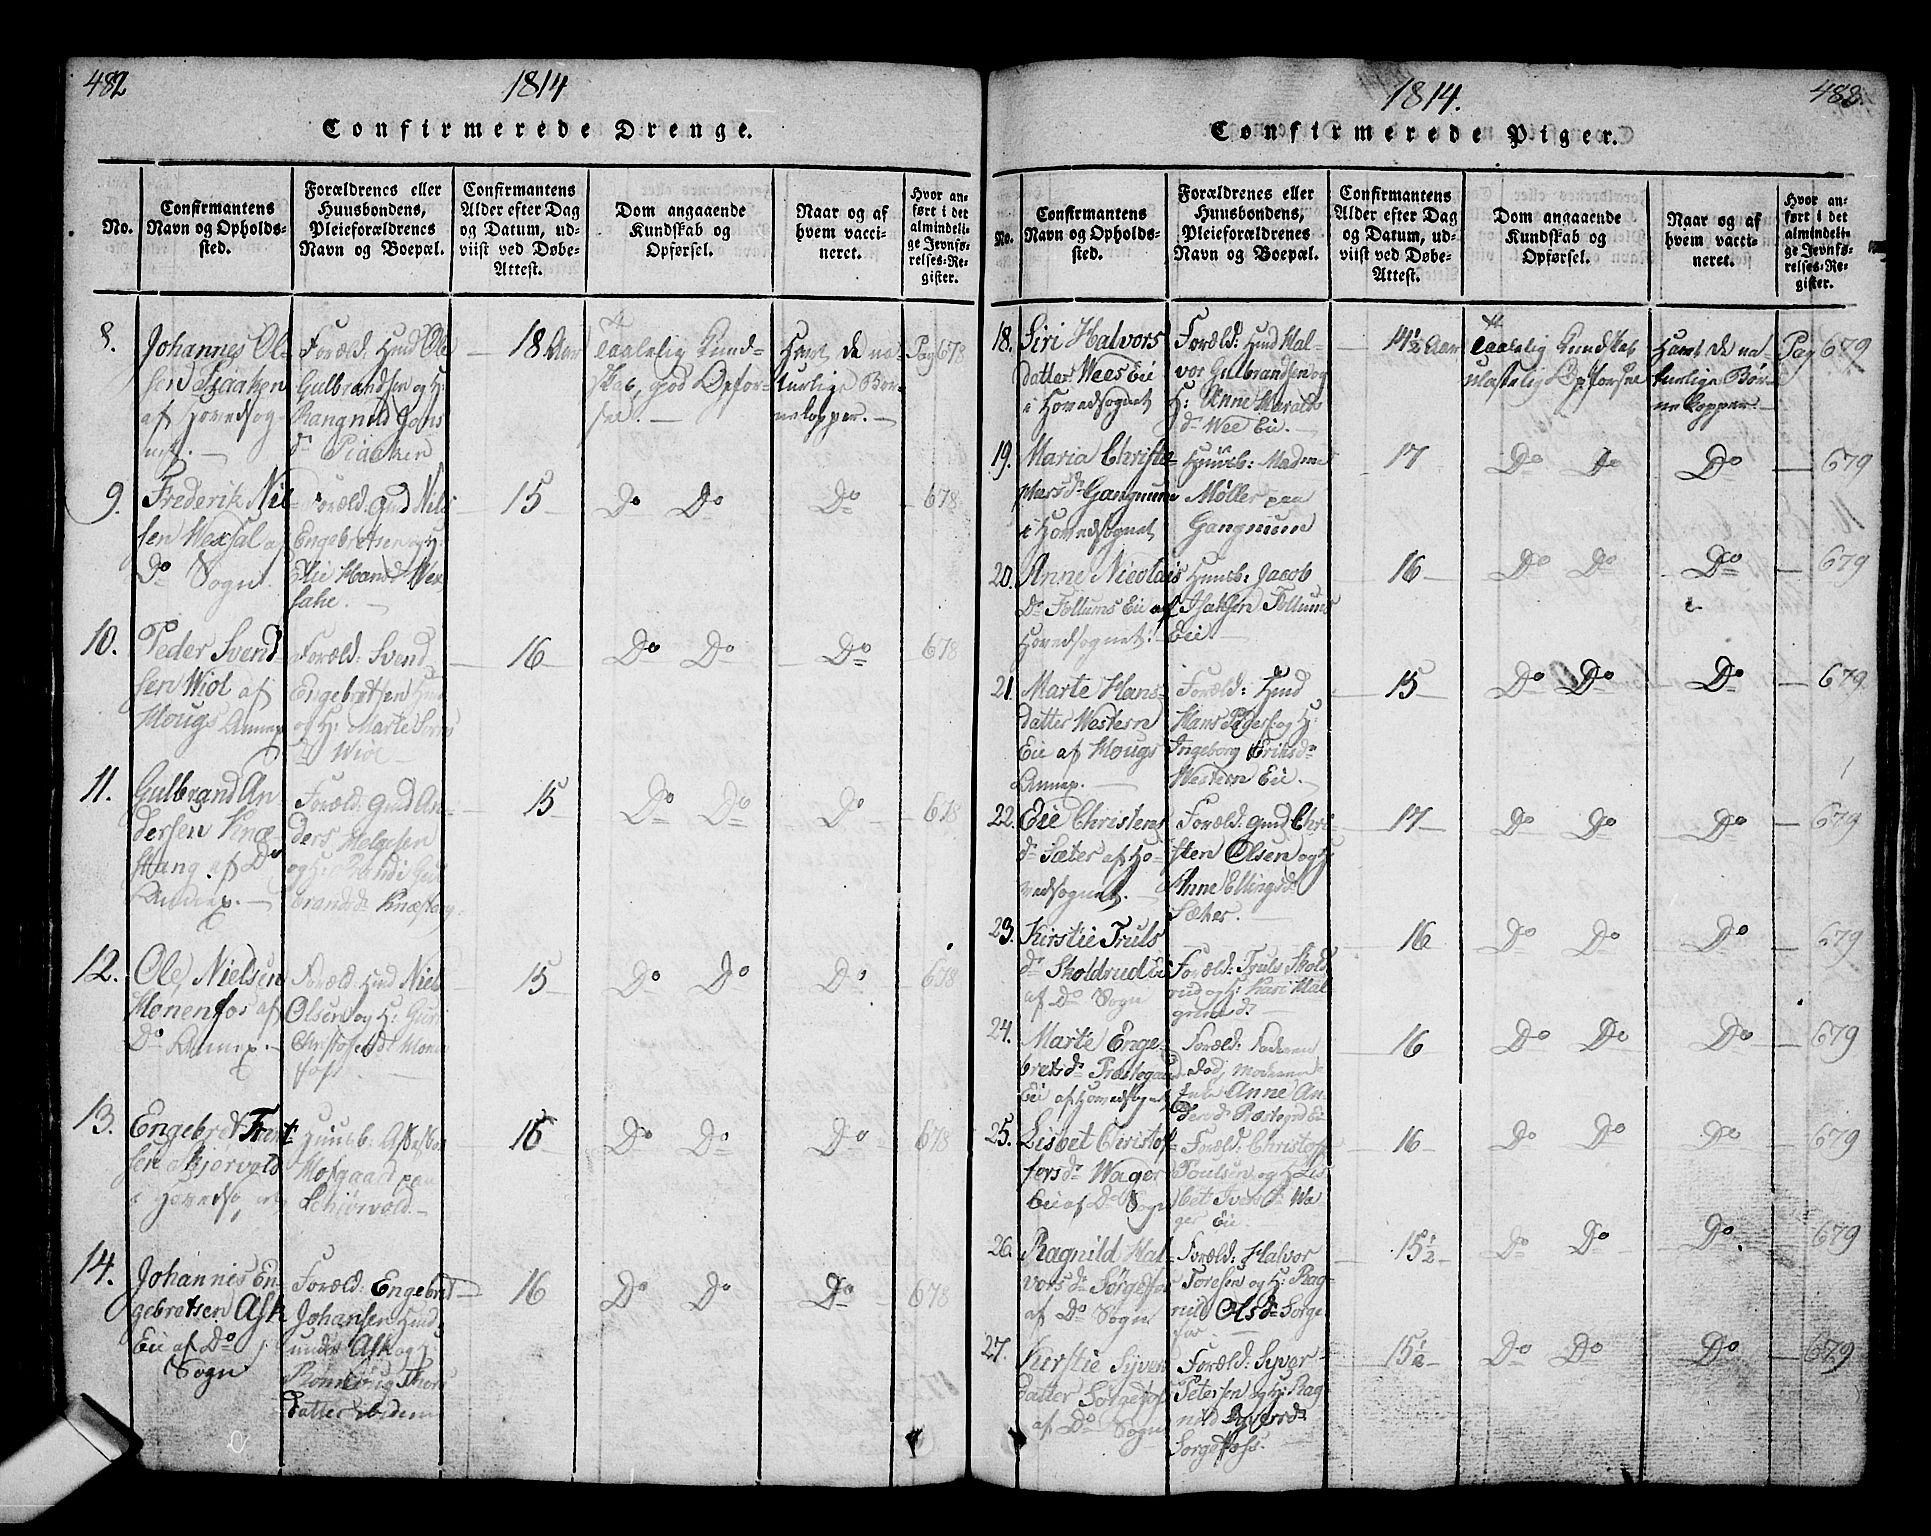 482
1814
Confirmerede Drenge.
No.
Confirmantens
Navn og Opholds-
sted.
Forældrenes eller
Huusbondens,
Pleieforældrenes
Navn og Boepæl.
Confirmantens
Alder efter Dag
og Datum, ud-
viist ved Døbe-
Attest.
Dom angaaende
Kundskab og
Opførsel.
Naar og af
hvem vacci-
neret.
Hvor an-
ført i det
almindeli-
ge Jevnfø-
relses-Re-
gister.
8.
Johannes Ol-
sen
af Hovedsog-
net.
Foræld: Hmd Ole
Gulbrandsen og H:
Rangnild Jans
18 Aar
Taalelig Kund-
skab, god Opfør-
sel.
Havt de na-
turlige Bør-
nekopper.
Pag 678
9.
Frederik Niel-
sen Wexsal af
Do Sogn.
Foræld. Gmd Niels
Engebretsen og H:
15
Do Do
Do
678
10.
Peder Svend
sen Wiol af
Hougs Annex
Foræld: Svend
Engebretsen Hmd
og H: Marte
Wiol
16
Do Do
Do
678
11.
Gulbrand An
dersen Knæ
stang af Do
Annex.
Foræld: Gmd An-
ders Helgesen
og H: Randi Gul
brandsd. Knæstang
15
Do Do
Do
678
12.
Ole Nielsen
Honenfos af
Do Annex.
Foræld: Hmd Niels
Olsen og H: Guri
15
Do Do
Do
678
13.
Engebret
sen Skjørvold
i Hovedso
Huusb:
Hofgaard paa
Schiørvold.
15
Do Do
Do
678
14.
Johannes En
gebretsen Ask
Eie af Do
Sogn
Foræld: Engebret
Johansen Hmd
under Ask og
Rønnoug Thors
datter ibidem
16
Do Do
Do
678
1814.
483.
Confirmerede Piger.
No.
Confirmantens
Navn og Opholds-
sted.
Forældrenes eller
Huusbondens,
Pleieforældrenes
Navn og Boepæl.
Confirmantens
Alder efter Dag
og Datum, ud-
viist ved Døbe-
Attest.
Dom angaaende
Kundskab og
Opførsel.
Naar og af
hvem vacci-
neret.
Hvor an-
ført i det
almindeli-
ge Jevnfø-
relses-Re-
gister.
18.
Siri Halvors
datter Wees Eie
i Hovedsognet
Foræld: Hmd Hal-
vor Gulbrandsen og
H: Anne Haralds
d. Wee Eie.
14½ Aar
Taalelig Kundskab
ulastelig Opførsel
Havt de na-
turlige Bør-
nekopper.
Pag 679
19.
Maria Christo-
phers d. Gangnum
i Hovedsognet
Huusb: Madame
Møller paa
Gangnum
17
Do Do
Do
679
20.
Anne Nicolais
D. Follums Eie af
Hovedsognet.
Huusb: Jacob
Isaksen Follums
Eie.
16
Do Do
Do
679
21.
Marte Hans-
datter Western
Eie af Hougs
Annex.
Foræld: Hmd
Hans Peders: og H:
Ingeborg Eriksd.
Western Eie.
15
Do Do
Do
679
22.
Eie Christens
d. Sæter af Ho-
vedsognet.
Foræld: Gmd Chri-
sten Olsen og H:
Anne Ellingsd.
Sæter.
17
Do Do
Do
679
23.
Kirstie Truls
d. Skoldrud Eie
af Do Sogn
Foræld: Truls Skold
rud og H: Kari Hal
16
Do Do
Do
679
24.
Marte Enge-
bretsd. Præstegaard
Eie af Hovedsognet
Foræld: Faderen
død, Moderen
Enke Anne An
dersd. Præstegrd Eie
16
Do Do
Do
679
25.
Lisbet Christof-
fersd. Wager
Eie af Do Sogn
Foræld: Christoffer
Poulsen og H: Lis
bet Iversd. Wa
ger Eie.
16
Do Do
Do
679
26.
Ragnild Hal-
vorsd. Sørgefos
af Do Sogn
Foræld: Halvor
Toresen og H: Rag
nild Olsd. Sørge
fos
15½
Do Do
Do.
679
27.
Kirstie Syver
datter Sørgefos
af Do Sogn
Foræld: Syver
Petersen og H: Rag
nild Syversd.
Sørgefoss.
15½
Do Do
Do
679